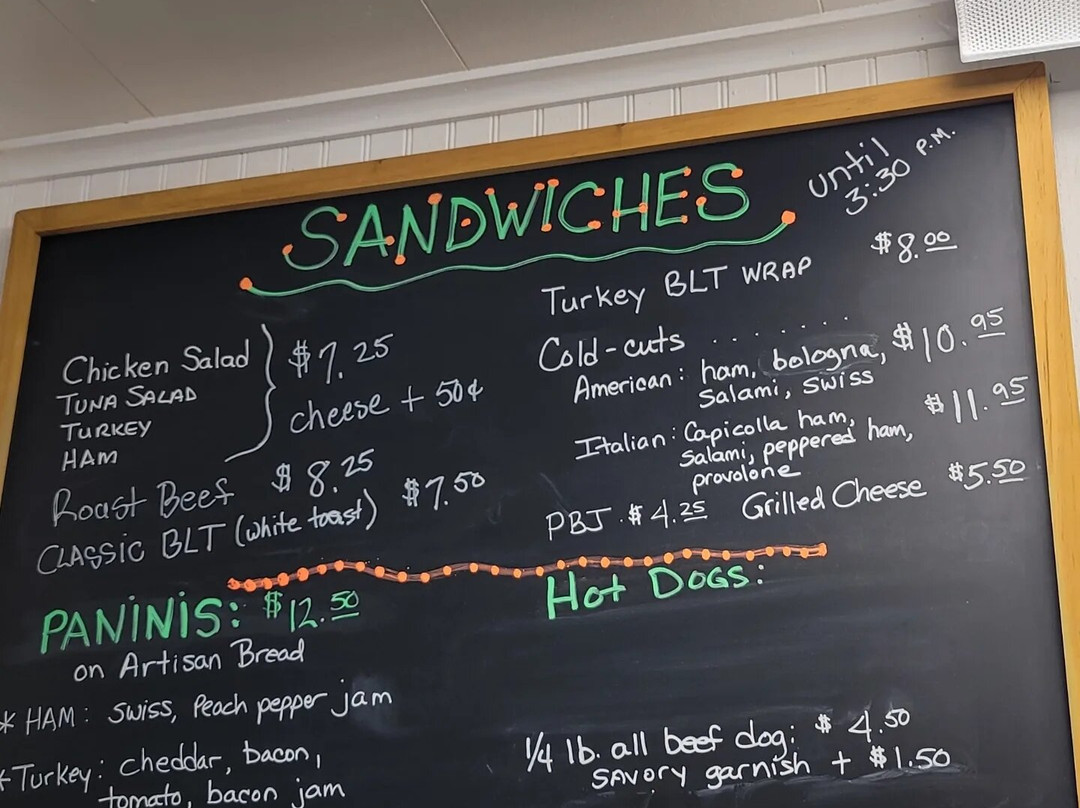 SANDWICHES
until
3:30 P.M.
Chicken Salad
TUNA SALAD
TURKEY
HAM
$7.25
cheese + 50¢
Roast Beef $8.25
CLASSIC BLT (white toast) $7.50
Turkey BLT WRAP $8.00
Cold-cuts . . . . . .
American: ham, bologna, $10.95
Salami, Swiss
Italian: Capicolla ham, $11.95
Salami, peppered ham,
provolone
PBJ . $4.25 Grilled Cheese $5.50
PANINIS: $12.50
on Artisan Bread
* HAM: Swiss, Peach pepper jam
* Turkey: cheddar, bacon,
tomato, bacon jam
Hot Dogs:
1/4 lb. all beef dog: $4.50
SAVORY garnish + $1.50